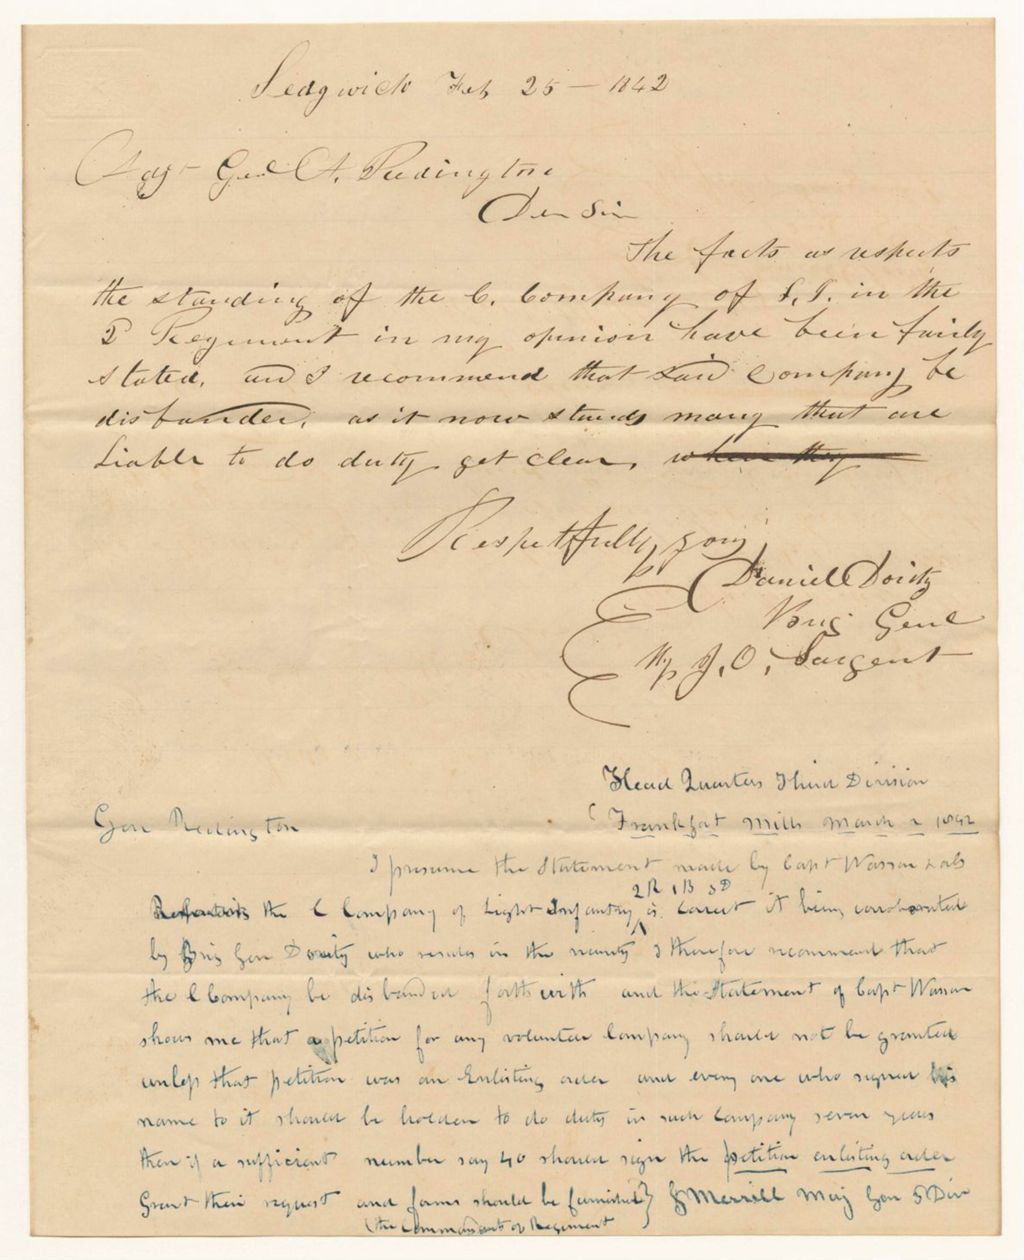 Sedgwick Feb 25 – 1842
Adjt Genl A. Redington
Dear Sir
The facts as respects
the standing of the C. Company of L. I. in the
2 Regiment in my opinion have been fairly
stated, and I recommend that said Company be
disbanded, as it now stands many that are
liable to do duty get clear, when they
Respetfully yours
Daniel Dority
Brig Genl
By J. O. Sargent
Head Quarters Third Division
Frankfort Mills March 2 1842
Gen Redington
I presume the Statement made by Capt Wasson
the C Company of Light Infantry 2 R 1 B 3 D is Correct it being corroborated
by Brig Gen Dority who resides in the vicinity I therefore recommend that
the C Company be disbanded forthwith and the Statement of Capt Wasson
shows me that a petition for any volunteer Company should not be granted
unless that petition was an Enlisting order and every one who signed his
name to it should be holden to do duty in such Company seven years
then if a sufficient number say 40 should sign the petition enlisting order
Grant their request and forms should be furnished J Merrill Maj Gen 3 Div
(the Commandants of Regiment